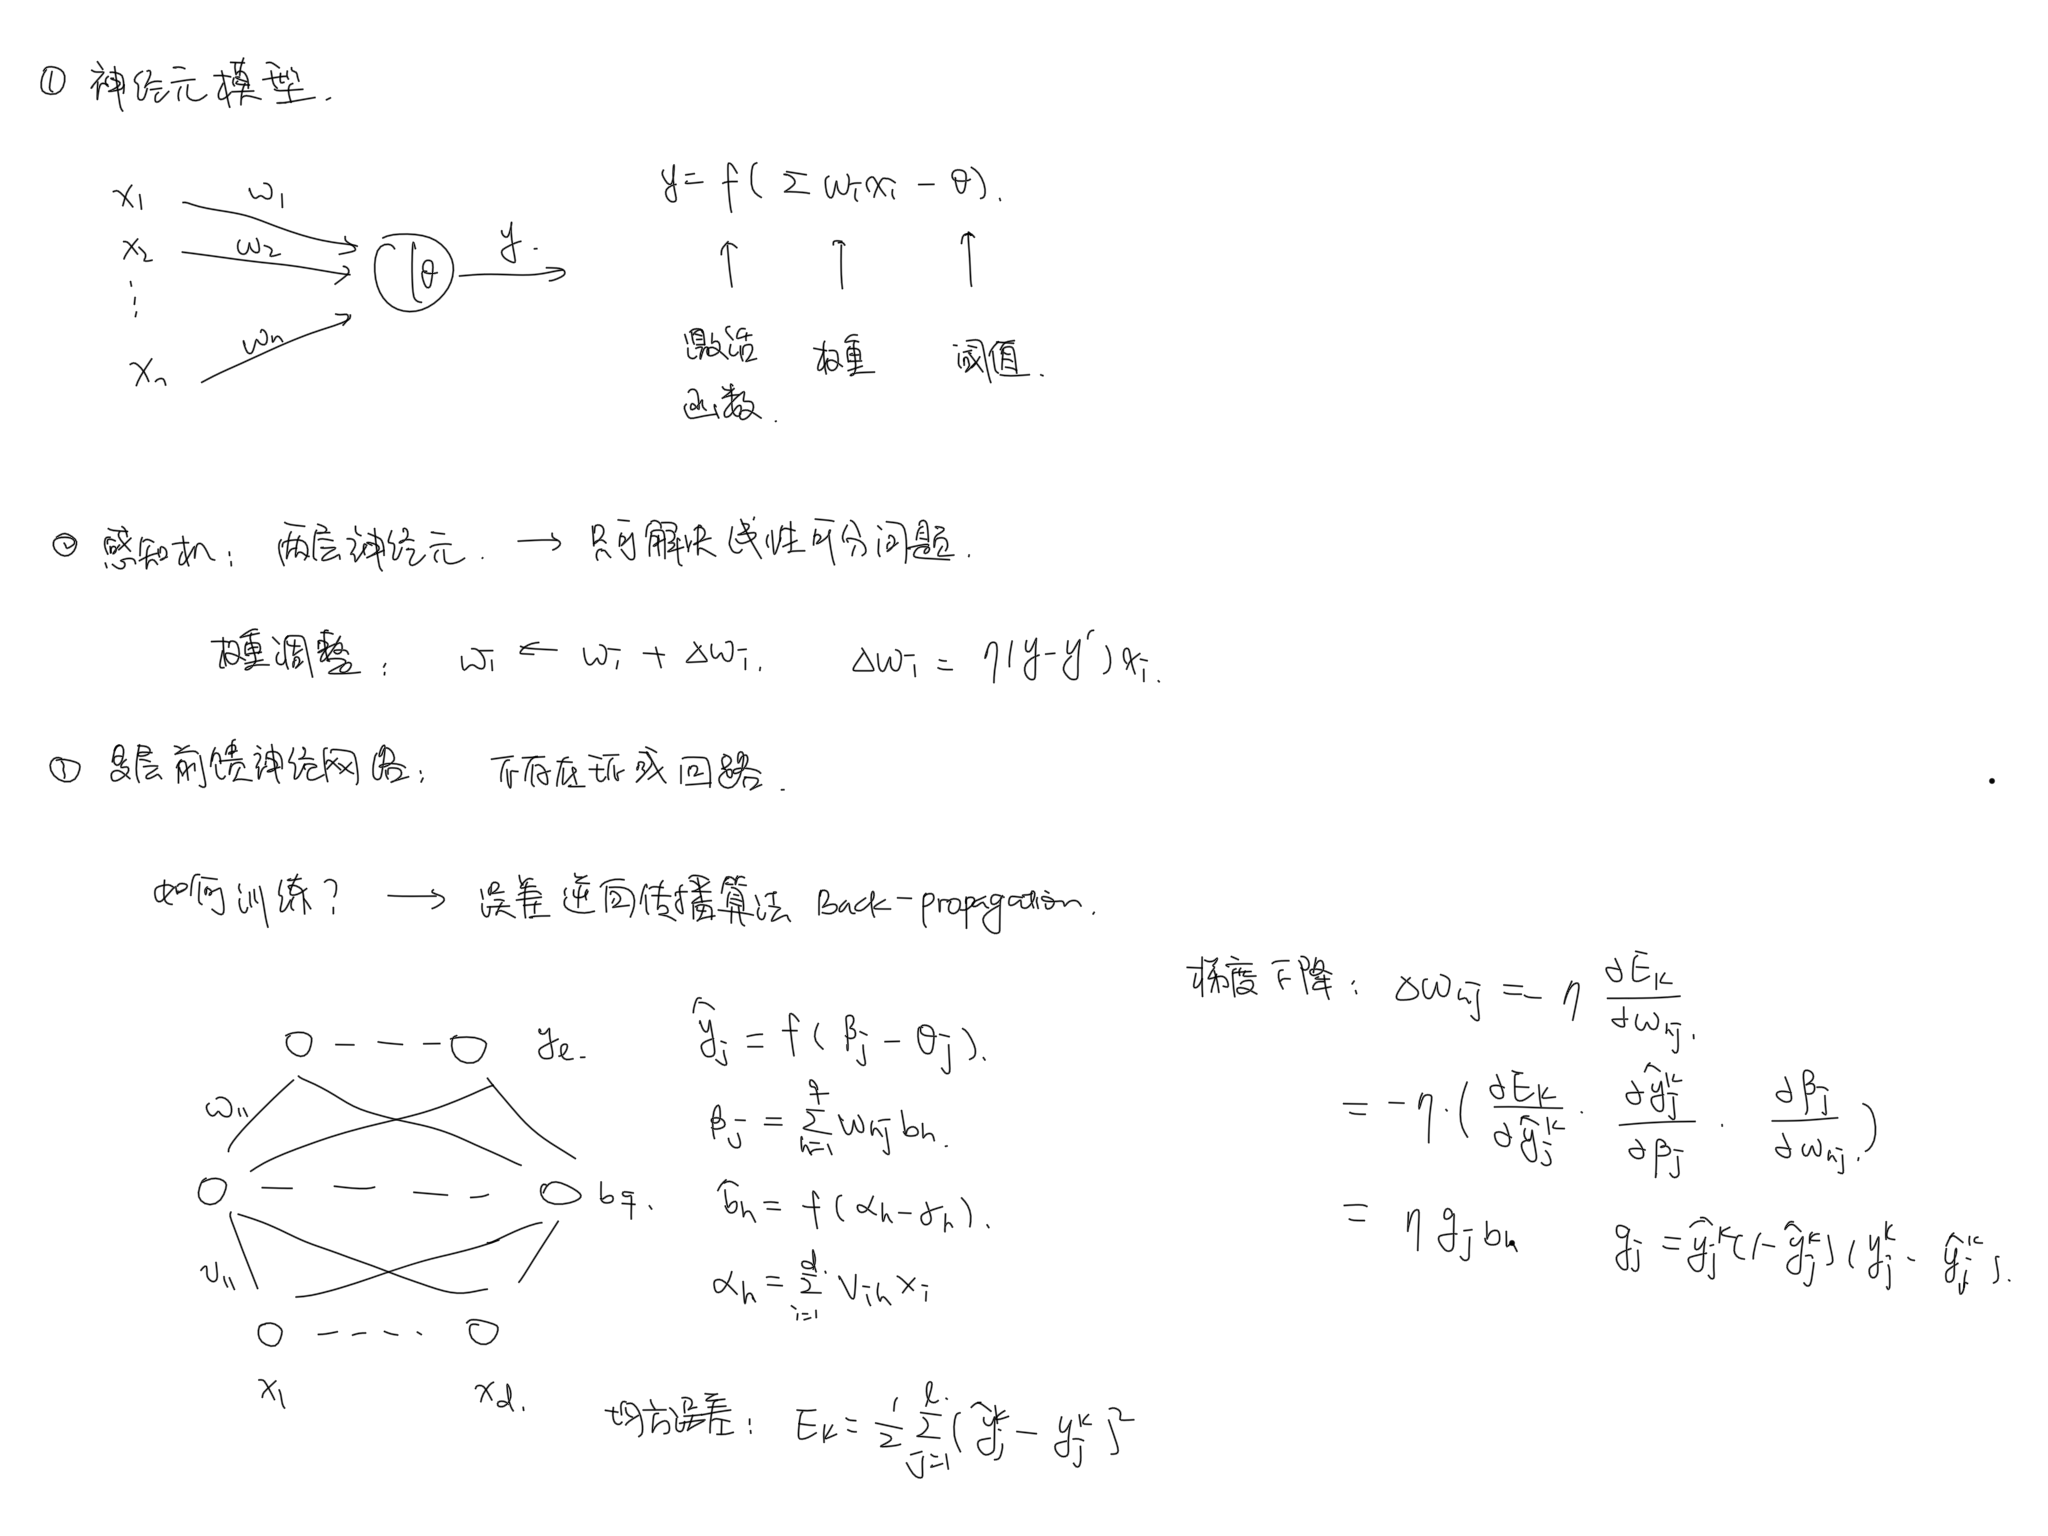 ① 神经元模型.
x₁ w₁
x₂ w₂
⋮
xₙ wₙ
θ
y.
y = f( Σ wᵢxᵢ − θ).
↑ ↑ ↑
激活 权重 阈值.
函数.
② 感知机: 两层神经元. → 只可解决线性可分问题.
权重调整: wᵢ ← wᵢ + Δwᵢ. Δwᵢ = η(y−y′)xᵢ.
③ 多层前馈神经网络: 不存在环或回路.
如何训练? → 误差逆向传播算法 Back-propagation.
yₗ.
w₁₁
b_q.
v₁₁
x₁ x_d.
ŷ_j = f( β_j − θ_j).
β_j = Σ_{h=1}^{q} w_{hj} b_h.
b̂_h = f(α_h − γ_h).
α_h = Σ_{i=1}^{d} v_{ih} x_i
均方误差: E_k = 1/2 Σ_{j=1}^{l} (ŷ_j^k − y_j^k)²
梯度下降: Δw_{hj} = − η ∂E_k/∂w_{hj}.
= −η·( ∂E_k/∂ŷ_j^k · ∂ŷ_j^k/∂β_j · ∂β_j/∂w_{hj}.)
= η g_j b_h g_j = ŷ_j^k(1−ŷ_j^k)(y_j^k − ŷ_j^k).